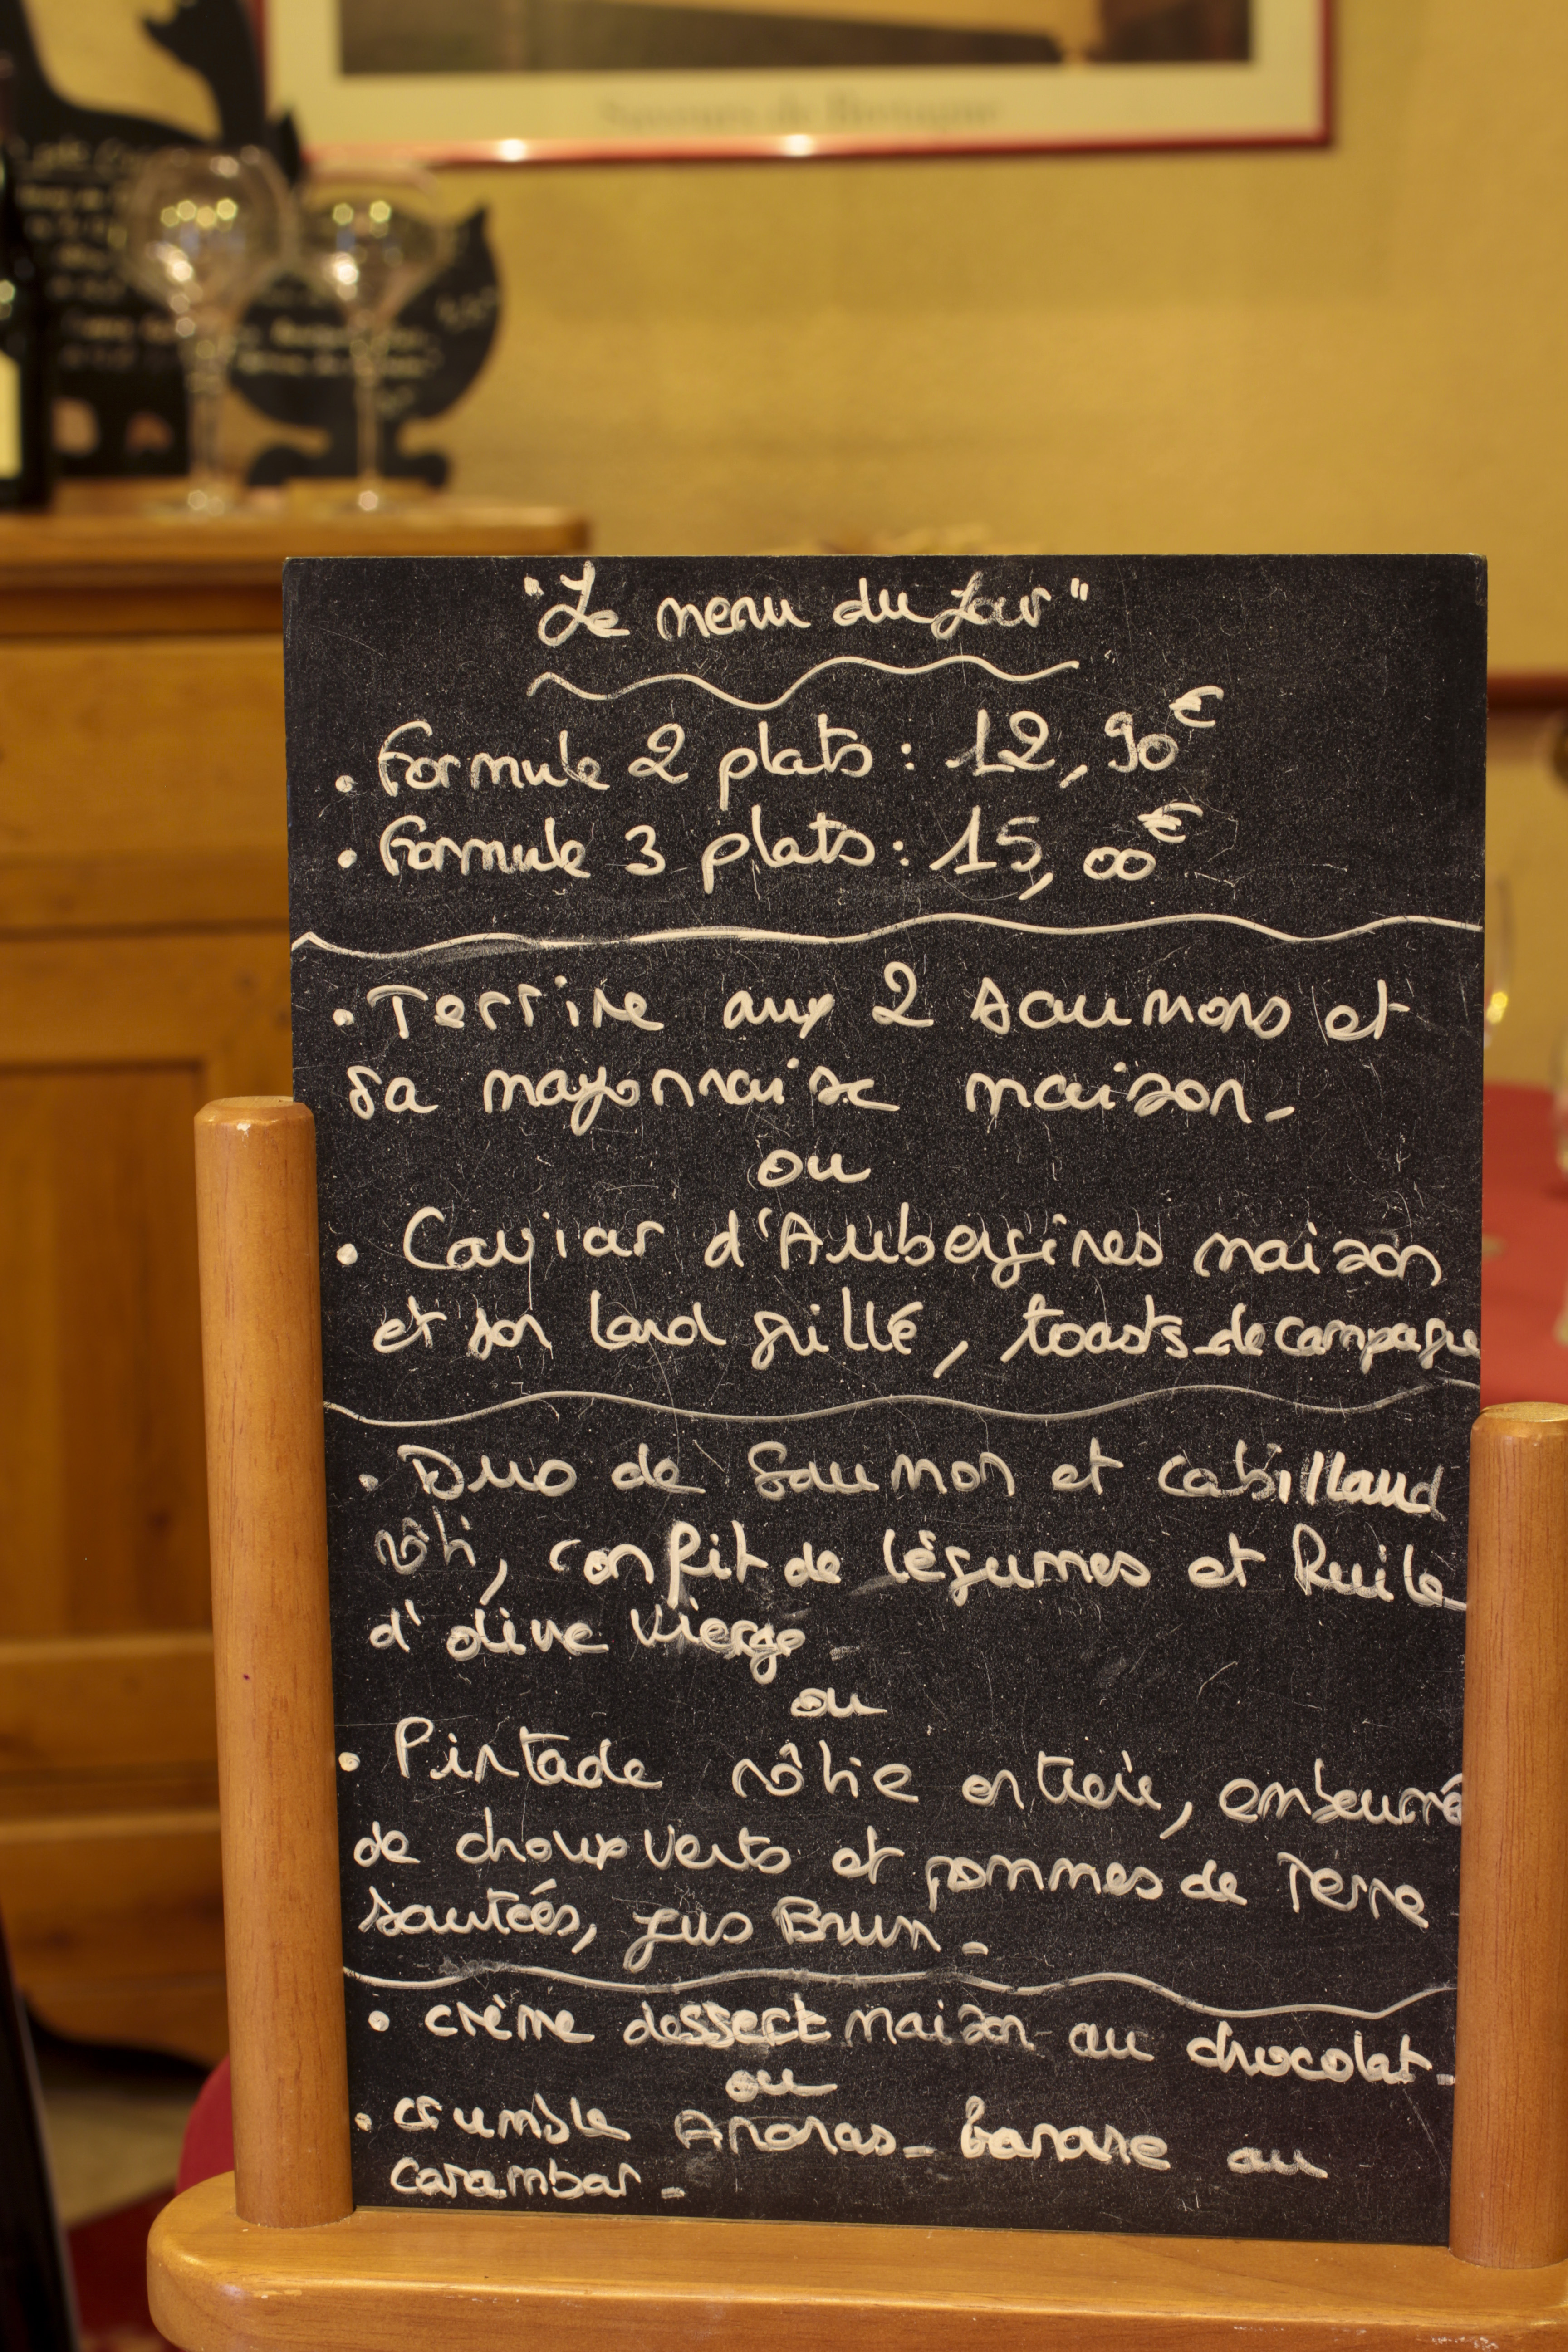 Saveurs de Bretagne
"Le menu du Jour"
. Formule 2 plats : 12,90€
. Formule 3 plats : 15,00€
. Terrine aux 2 saumons et
sa mayonnaise maison.
ou
. Caviar d'Aubergines maison
et son lard grillé, toasts de campagne
. Duo de Saumon et cabillaud
rôti, confit de légumes et huile
d'olive vierge
ou
. Pintade rôtie entière, embeurré
de choux verts et pommes de Terre
sautées, jus Brun.
. crème dessert maison au chocolat.
ou
. crumble Ananas - banane au
carambar.